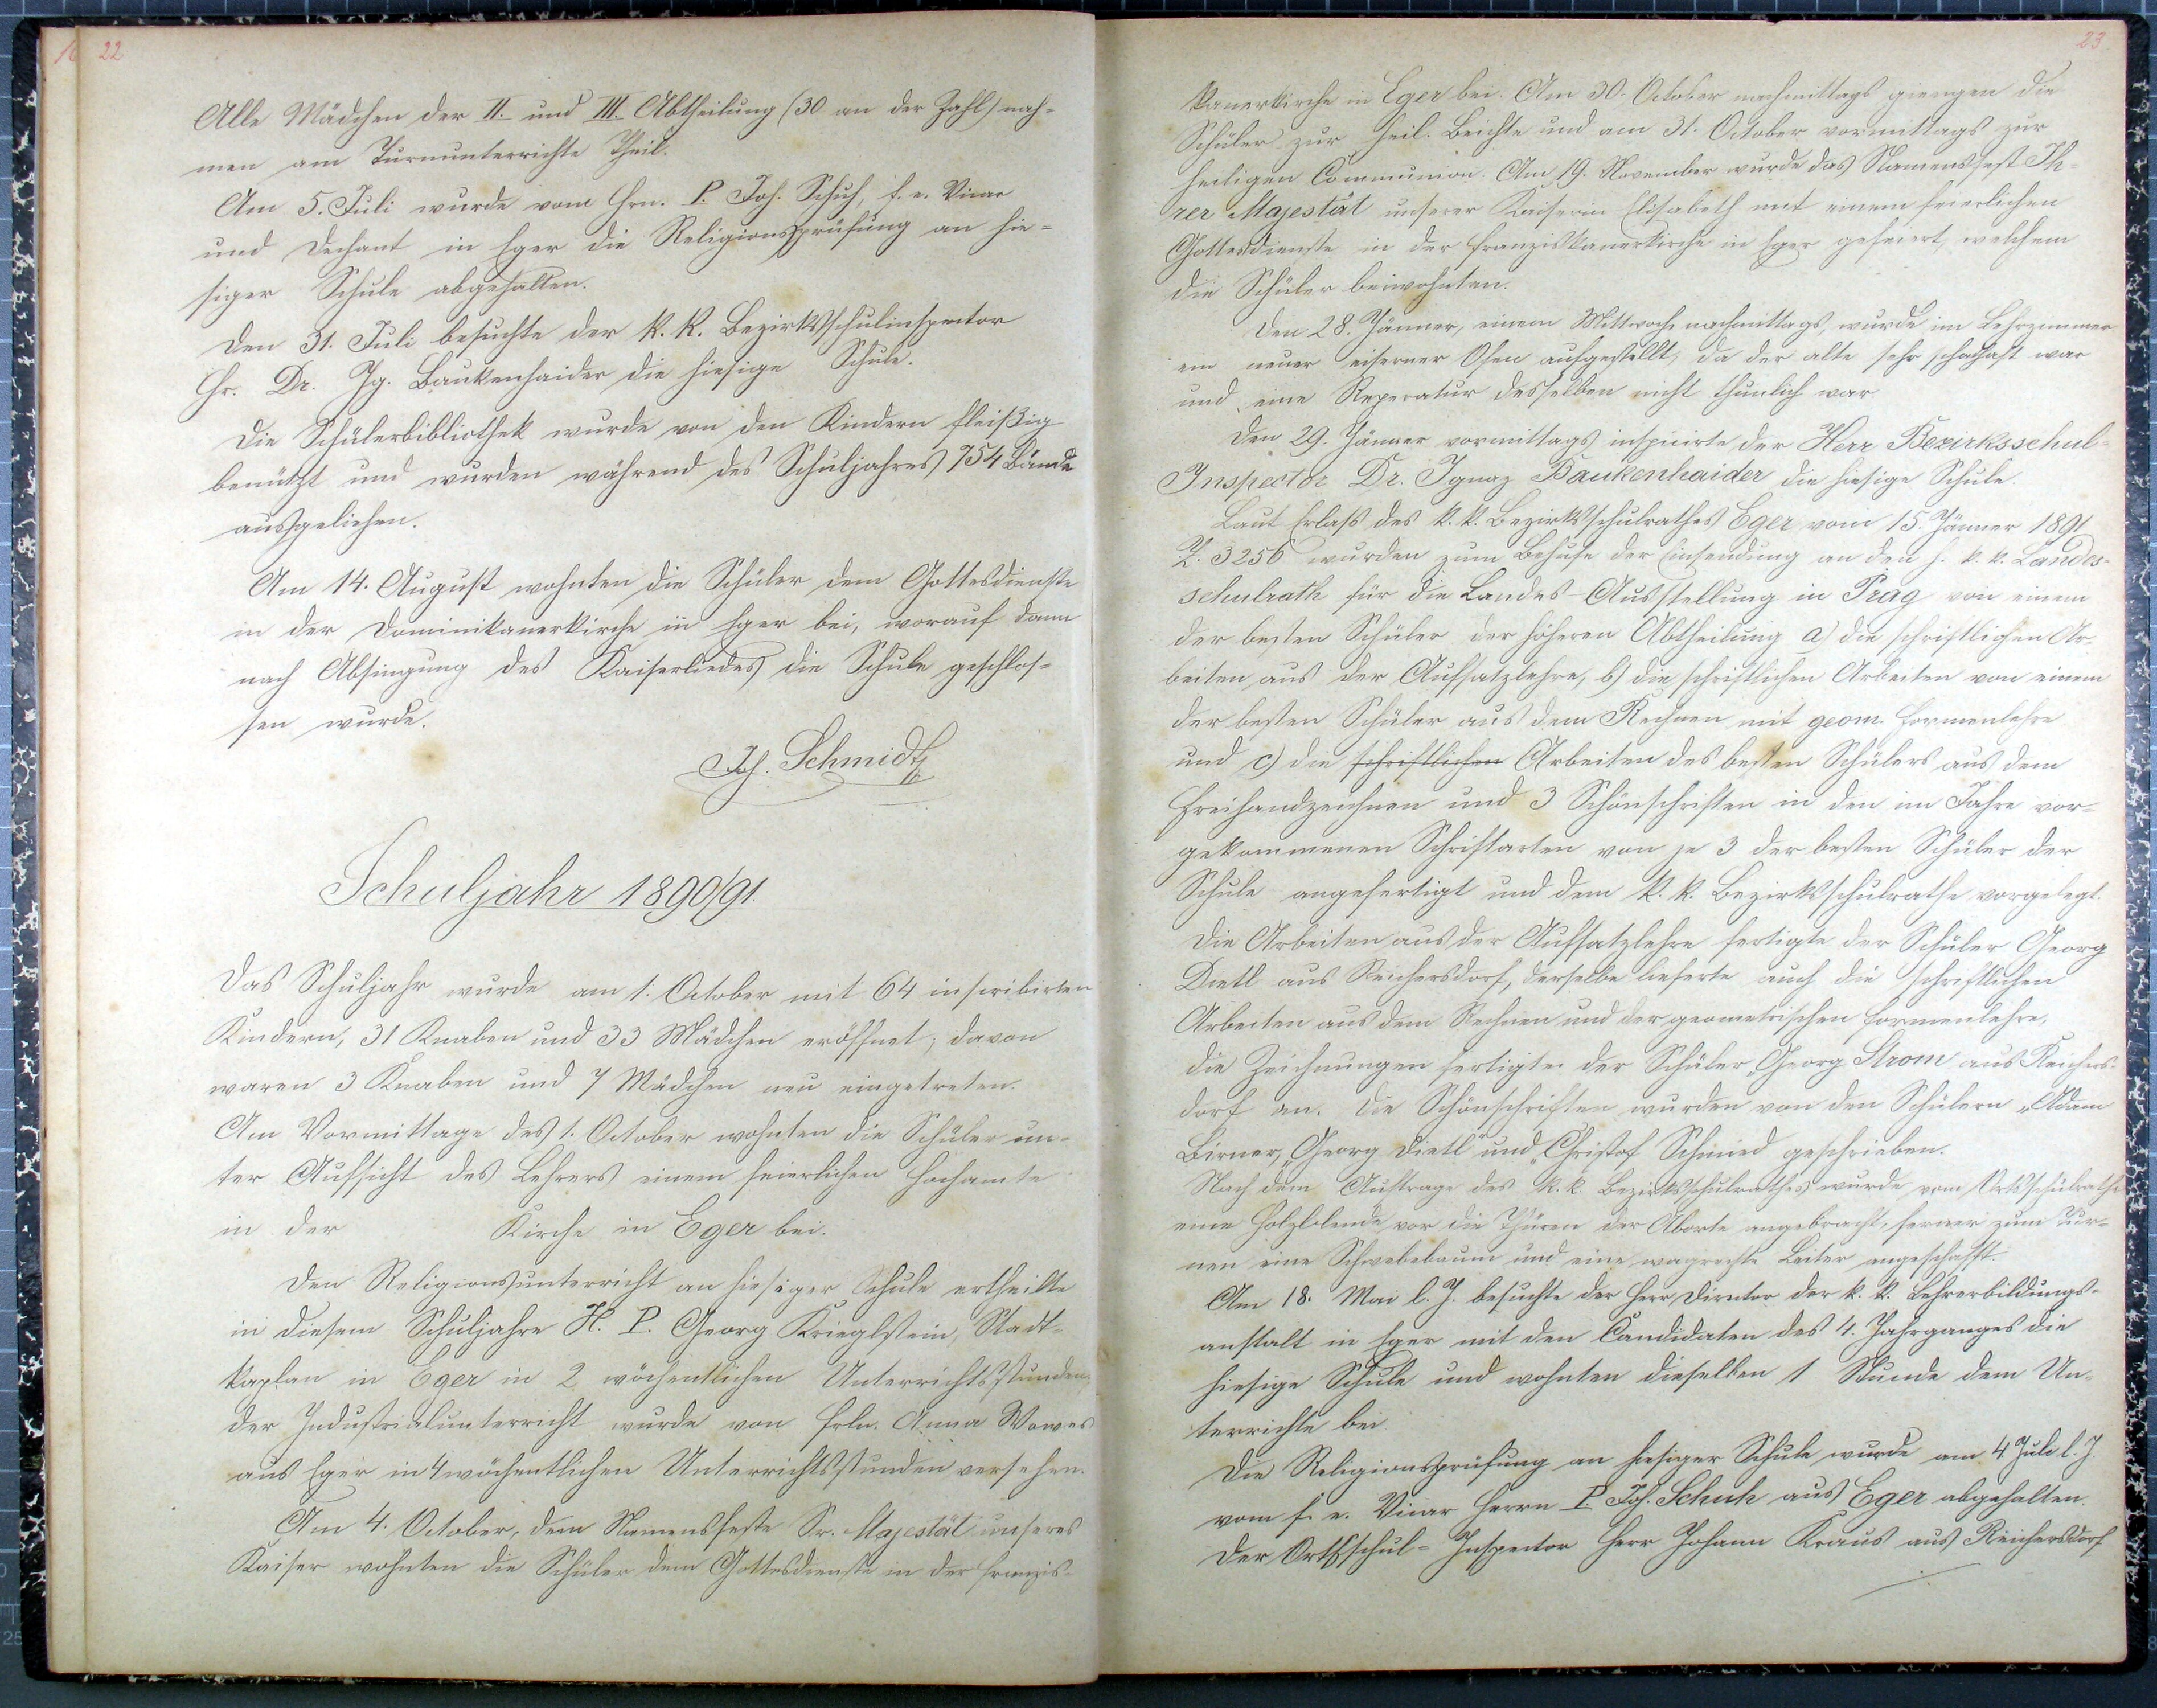 22
Alle Mädchen der II. und III. Abtheilung (30 an der Zahl) nah-
men am Turnunterrichte Theil.
Am 5. Juli wurde vom Hrn. P. Joh. Schuh, f. e. Vicar
und Dechant in Eger die Religionsprüfung an hie-
siger Schule abgehalten.
Den 31. Juli besuchte der k. k. Bezirksschulinspector
Hr. Dr. Ig. Baukenhaider die hiesige Schule.
Die Schülerbibliothek wurde von den Kindern fleißig
benützt und wurden während des Schuljahres 754 Bände
ausgeliehen.
Am 14. August wohnten die Schüler dem Gottesdienste
in der Dominikanerkirche in Eger bei, worauf dann
nach Absingung des Kaiserliedes die Schule geschlos-
sen wurde.
Joh. Schmidt
Schuljahr 1890/91.
Das Schuljahr wurde am 1. October mit 64 inscribirten
Kindern, 31 Knaben und 33 Mädchen eröffnet; davon
waren 3 Knaben und 7 Mädchen neu eingetreten.
Am Vormittage des 1. October wohnten die Schüler un-
ter Aufsicht des Lehrers einem feierlichen Hochamte
in der Kirche in Eger bei.
Den Religionsunterricht an hiesiger Schule ertheilte
in diesem Schuljahre H. P. Georg Krieglstein, Stadt-
kaplan in Eger in 2 wöchentlichen Unterrichtsstunden;
der Industrialunterricht wurde von Frln. Anna Wowes
aus Eger in 4 wöchentlichen Unterrichtsstunden versehen.
Am 4. October, dem Namensfeste Sr. Majestät unseres
Kaiser wohnten die Schüler dem Gottesdienste in der Franzis-
23
kanerkirche in Eger bei. Am 30. October nachmittags giengen die
Schüler zur heil. Beichte und am 31. October vormittags zur
heiligen Communion. Am 19. November wurde das Namensfest Ih-
rer Majestät unserer Kaiserin Elisabeth mit einem feierlichen
Gottesdienste in der Franziskanerkirche in Eger gefeiert, welchem
die Schüler beiwohnten.
Den 28. Jänner, einem Mittwoch nachmittags, wurde im Lehrzimmer
ein neuer eiserner Ofen aufgestellt, da der alte sehr schadhaft war
und eine Reperatur desselben nicht thunlich war.
Den 29. Jänner vormittags inspicirte der Herr Bezirksschul-
Inspector Dr. Ignaz Baukenhaider die hiesige Schule.
Laut Erlaß des k. k. Bezirksschulrathes Eger vom 15. Jänner 1891
Z. 3256 wurden zum Behufe der Einsendung an den h. k. k. Landes-
schulrath für die Landes-Ausstellung in Prag von einem
der besten Schüler der höheren Abtheilung a) die schriftlichen Ar-
beiten aus der Aufsatzlehre, b) die schriftlichen Arbeiten von einem
der besten Schüler aus dem Rechnen mit geom. Formenlehre
und c) die schriftlichen Arbeiten des besten Schülers aus dem
Freihandzeichnen und 3 Schönschriften in den im Jahre vor-
gekommenen Schriftarten von je 3 der besten Schüler der
Schule angefertigt und dem k. k. Bezirksschulrathe vorgelegt.
Die Arbeiten aus der Aufsatzlehre fertigte der Schüler Georg
Dietl aus Reichersdorf, derselbe lieferte auch die schriftlichen
Arbeiten aus dem Rechnen und der geometrischen Formenlehre,
die Zeichnungen fertigte der Schüler „Georg Strom aus Reichers-
dorf an. Die Schönschriften wurden von den Schülern „Adam
Birner, „Georg Dietl" und „Christof Schmied geschrieben.
Nach dem Auftrage des k. k. Bezirksschulrathes wurde vom Ortsschulrathe
eine Holzblende vor die Thüren der Aborte angebracht, ferner zum Tur-
nen eine Schwebebaum und eine wagrechte Leiter angeschafft.
Am 18. Mai l. J. besuchte der Herr Director der k. k. Lehrerbildungs-
anstalt in Eger mit den Candidaten des 4. Jahrganges die
hiesige Schule und wohnten dieselben 1 Stunde dem Un-
terrichte bei.
Die Religionsprüfung an hiesiger Schule wurde am 4. Juli l. J.
vom f. e. Vicar Herrn P. Joh. Schuh aus Eger abgehalten.
Der Ortsschul-Inspector Herr Johann Kraus aus Reichersdorf